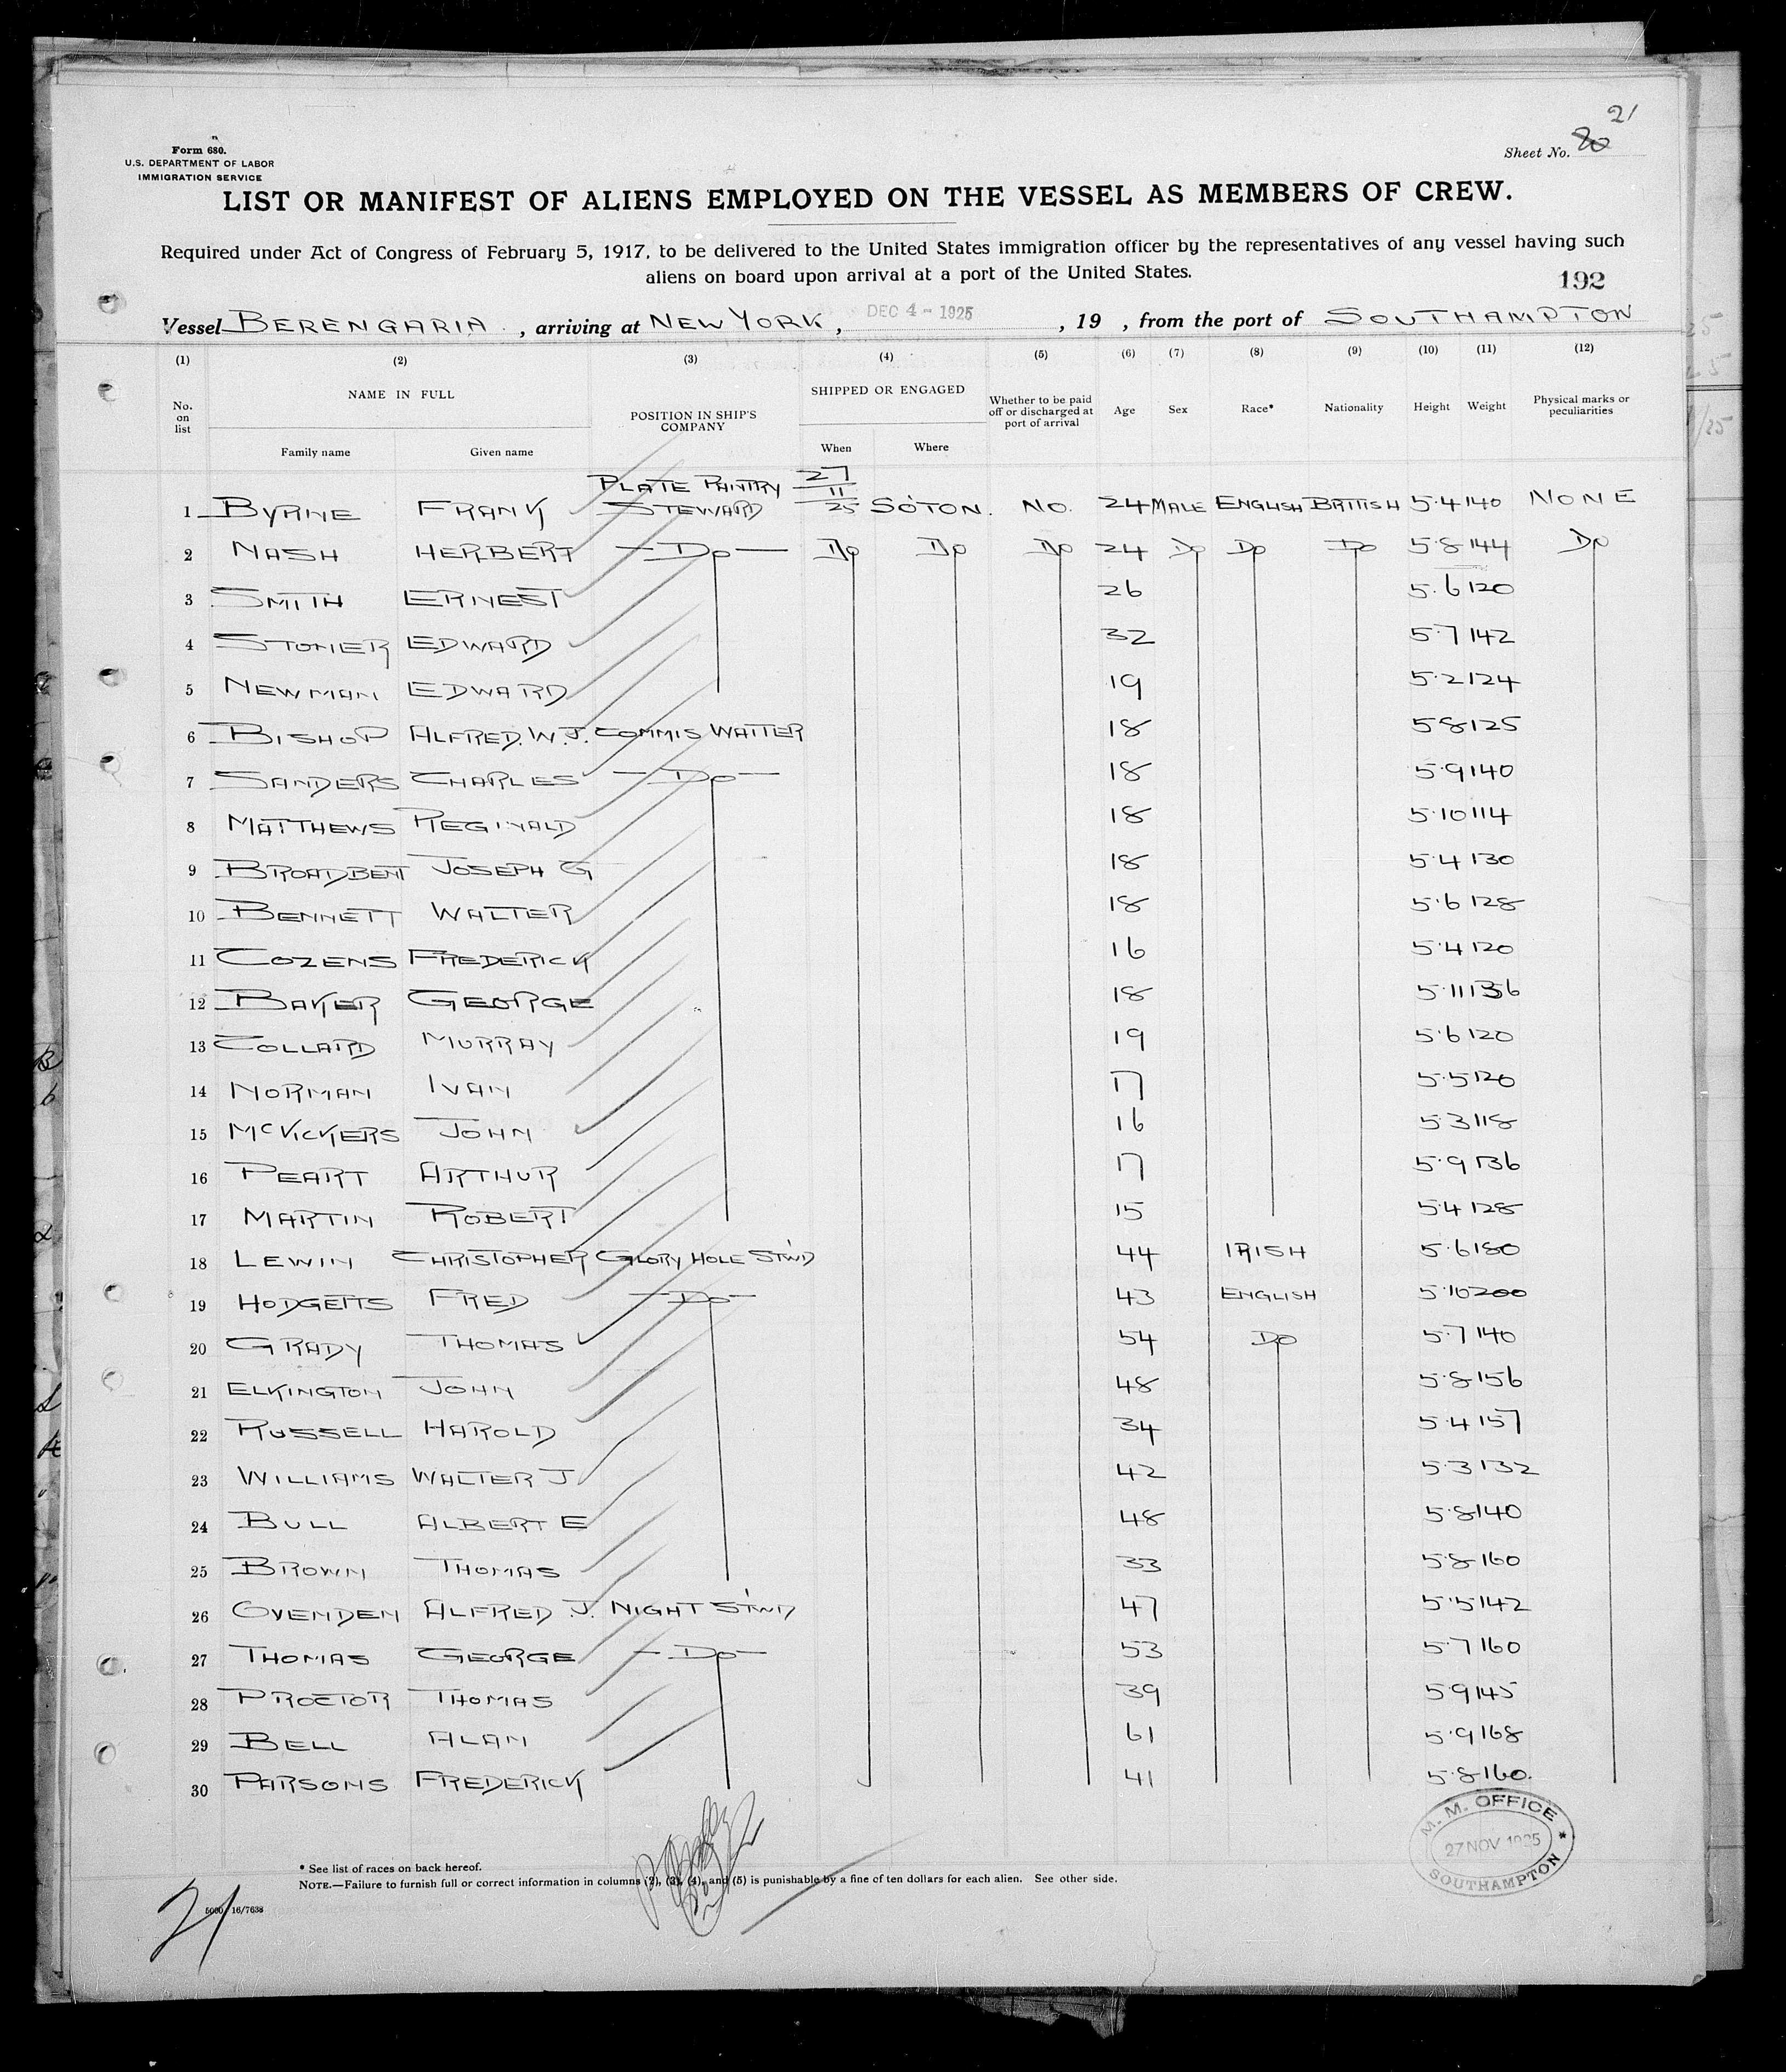 21
Form 680.
U.S. DEPARTMENT OF LABOR
IMMIGRATION SERVICE
Sheet No. 20
LIST OR MANIFEST OF ALIENS EMPLOYED ON THE VESSEL AS MEMBERS OF CREW.
Required under Act of Congress of February 5, 1917, to be delivered to the United States immigration officer by the representatives of any vessel having such
aliens on board upon arrival at a port of the United States.
192
Vessel BERENGARIA, arriving at NEW YORK, DEC 4 - 1925, 19 , from the port of SOUTHAMPTON
(1) (2) (3) (4) (5) (6) (7) (8) (9) (10) (11) (12)
No. on list NAME IN FULL POSITION IN SHIP'S COMPANY SHIPPED OR ENGAGED Whether to be paid off or discharged at port of arrival Age Sex Race* Nationality Height Weight Physical marks or peculiarities
Family name Given name When Where
1 BYRNE FRANK PLATE PANTRY STEWARD 27/11/25 SO'TON. NO. 24 MALE ENGLISH BRITISH 5.4 140 NONE
2 NASH HERBERT - Do - Do Do Do 24 Do Do Do 5.8 144 Do
3 SMITH ERNEST 26 5.6 120
4 STONER EDWARD 32 5.7 142
5 NEWMAN EDWARD 19 5.2 124
6 BISHOP ALFRED. W. J. COMMIS WAITER 18 5.8 125
7 SANDERS CHARLES - Do - 18 5.9 140
8 MATTHEWS REGINALD 18 5.10 114
9 BROADBENT JOSEPH G 18 5.4 130
10 BENNETT WALTER 18 5.6 128
11 COZENS FREDERICK 16 5.4 120
12 BAKER GEORGE 18 5.11 136
13 COLLARD MURRAY 19 5.6 120
14 NORMAN IVAN 17 5.5 120
15 McVICKERS JOHN 16 5.3 118
16 PEART ARTHUR 17 5.9 136
17 MARTIN ROBERT 15 5.4 128
18 LEWIN CHRISTOPHER GLORY HOLE ST'WD 44 IRISH 5.6 180
19 HODGETTS FRED - Do - 43 ENGLISH 5.10 200
20 GRADY THOMAS 54 Do 5.7 140
21 ELKINGTON JOHN 48 5.8 156
22 RUSSELL HAROLD 34 5.4 157
23 WILLIAMS WALTER J 42 5.3 132
24 BULL ALBERT E 48 5.8 140
25 BROWN THOMAS 33 5.8 160
26 OVENDEN ALFRED J. NIGHT ST'WD 47 5.5 142
27 THOMAS GEORGE - Do - 53 5.7 160
28 PROCTOR THOMAS 39 5.9 145
29 BELL ALAN 61 5.9 168
30 PARSONS FREDERICK 41 5.8 160.
M. M. OFFICE
27 NOV 1925
SOUTHAMPTON
* See list of races on back hereof.
NOTE.—Failure to furnish full or correct information in columns (2), (3), (4), and (5) is punishable by a fine of ten dollars for each alien. See other side.
5000 16/7638
21